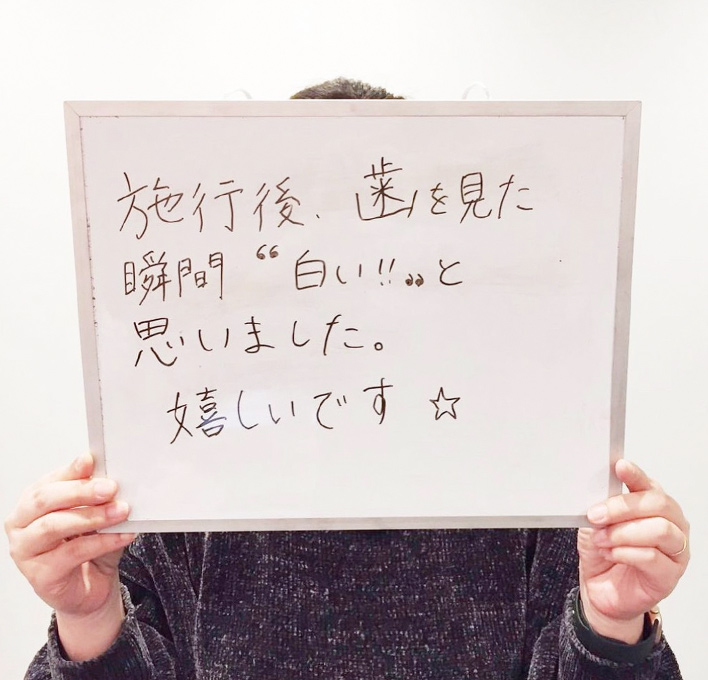 施行後、歯を見た
瞬間“白い!!„と
思いました。
嬉しいです☆